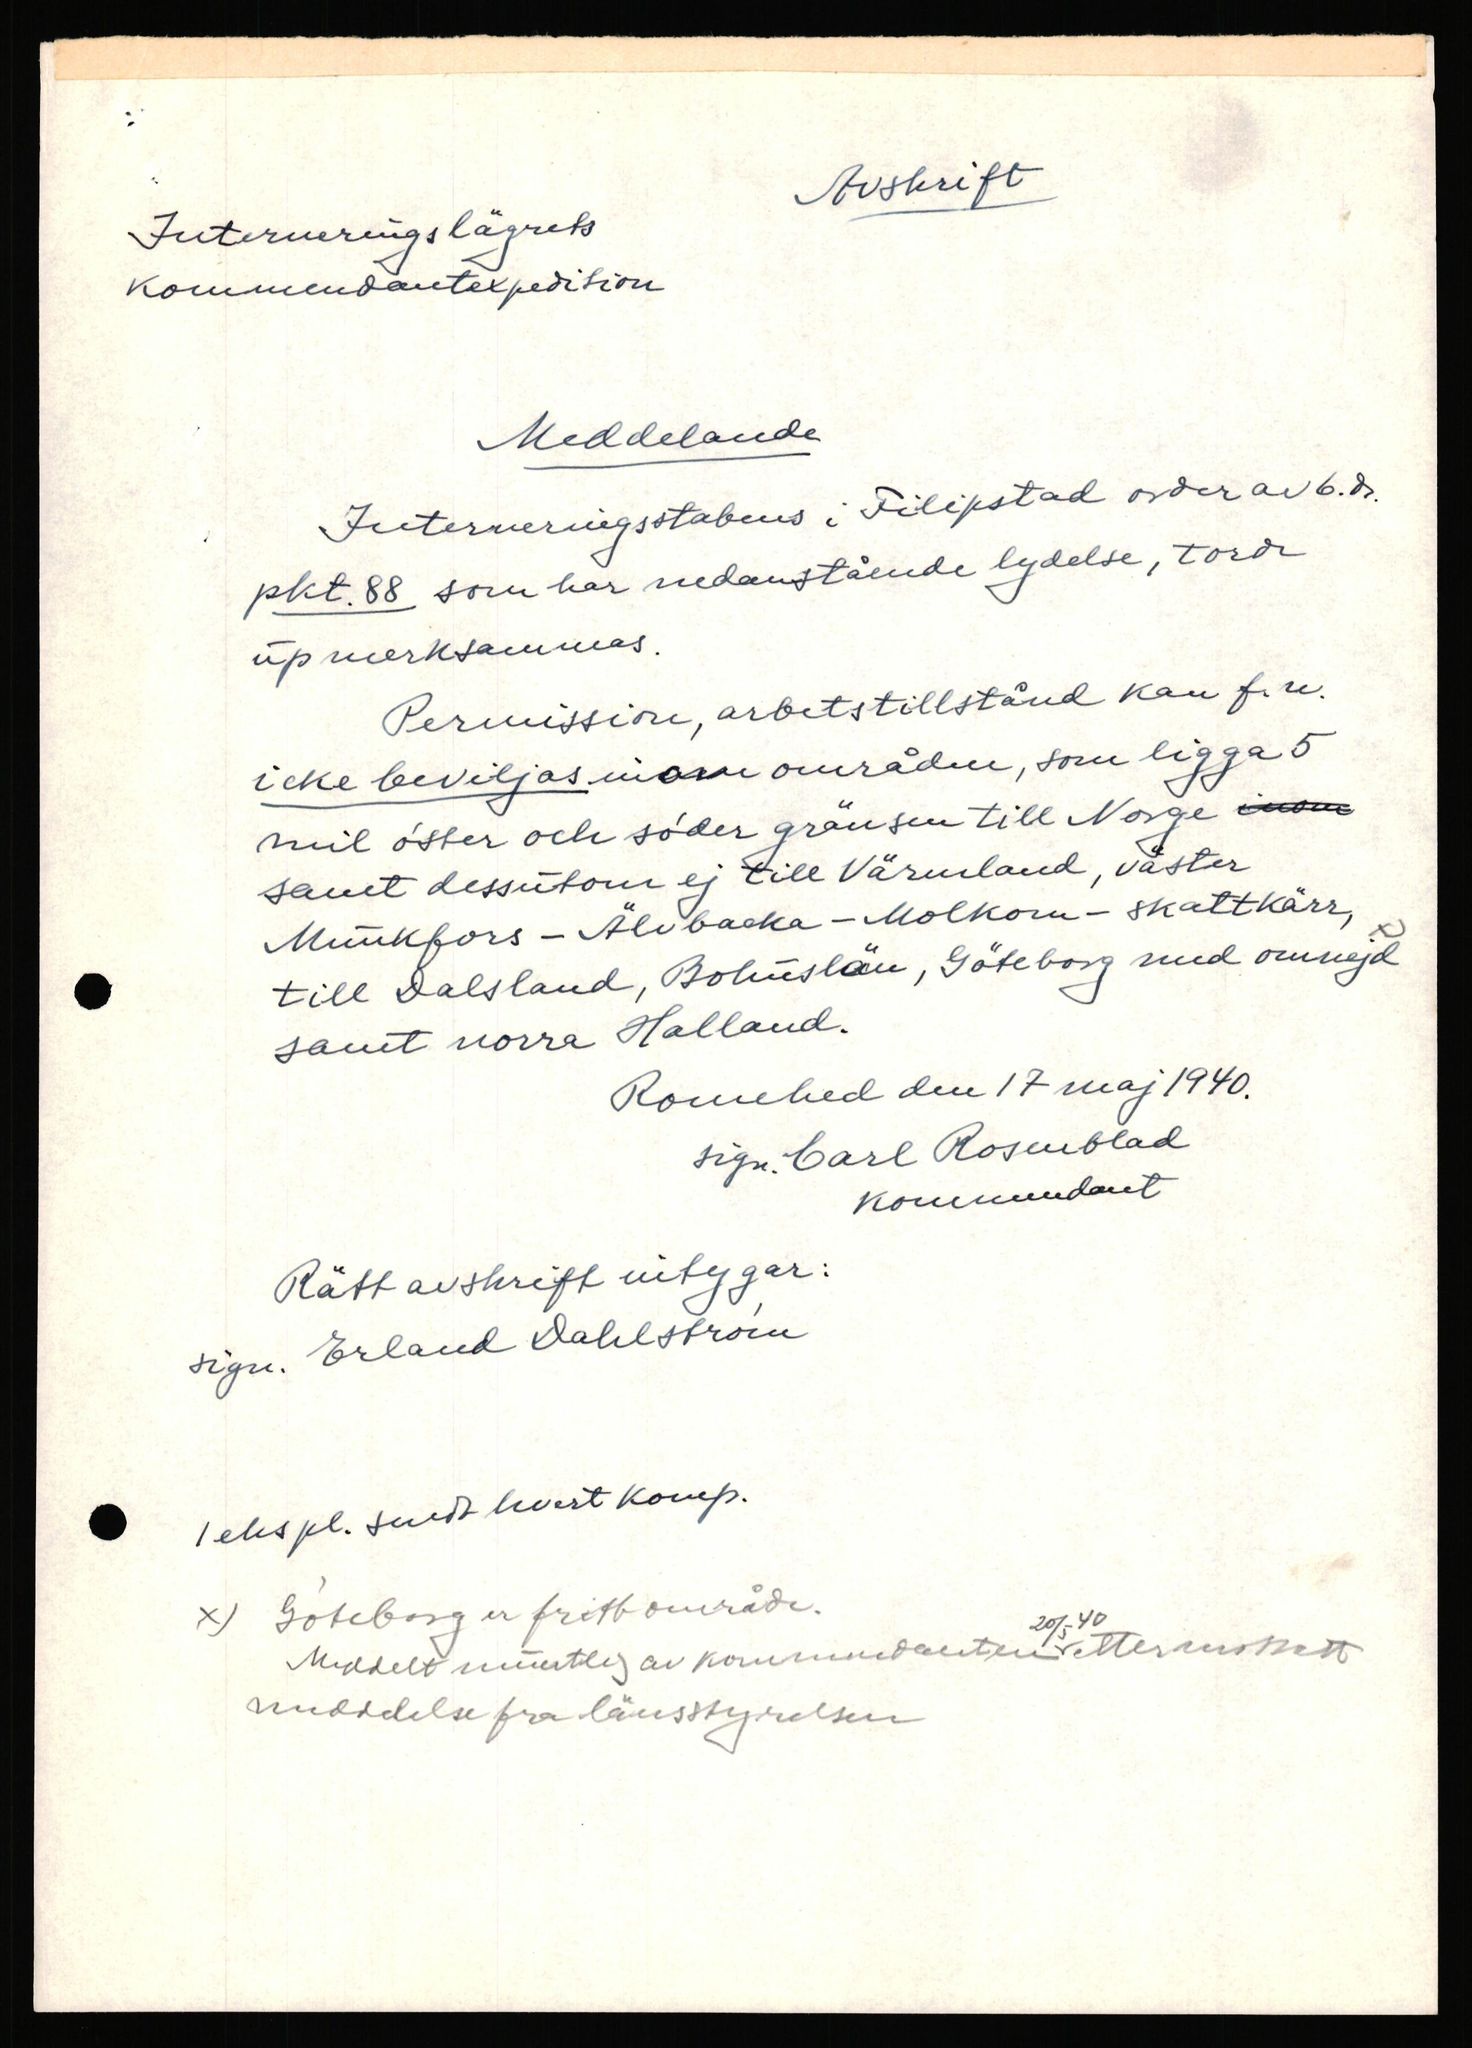 Avskrift
Interneringslägrets
kommendantexpedition
Meddelande
Interneringsstabens i Filipstad order av 6. ds.
pkt. 88 som har nedanstående lydelse, torde
upmerksammas.
Permission, arbetstillstånd kan f. n.
icke beviljas inom områden, som ligga 5
mil öster och söder gränsen till Norge inom
samt dessutom ej till Värmland, väster
Munkfors - Älvbacka - Molkom - Skattkärr,
till Dalsland, Bohuslän, Göteborg med omnejd x)
samt norra Halland.
Romehed den 17 maj 1940.
sign. Carl Rosenblad
kommendant
Rätt avskrift intygar:
sign. Erland Dahlström
1 ekspl. sendt hvert komp.
x) Göteborg er fritt område.
20/5 40
Meddelt muntlig av kommendanten etter mottatt
meddelse fra länsstyrelsen